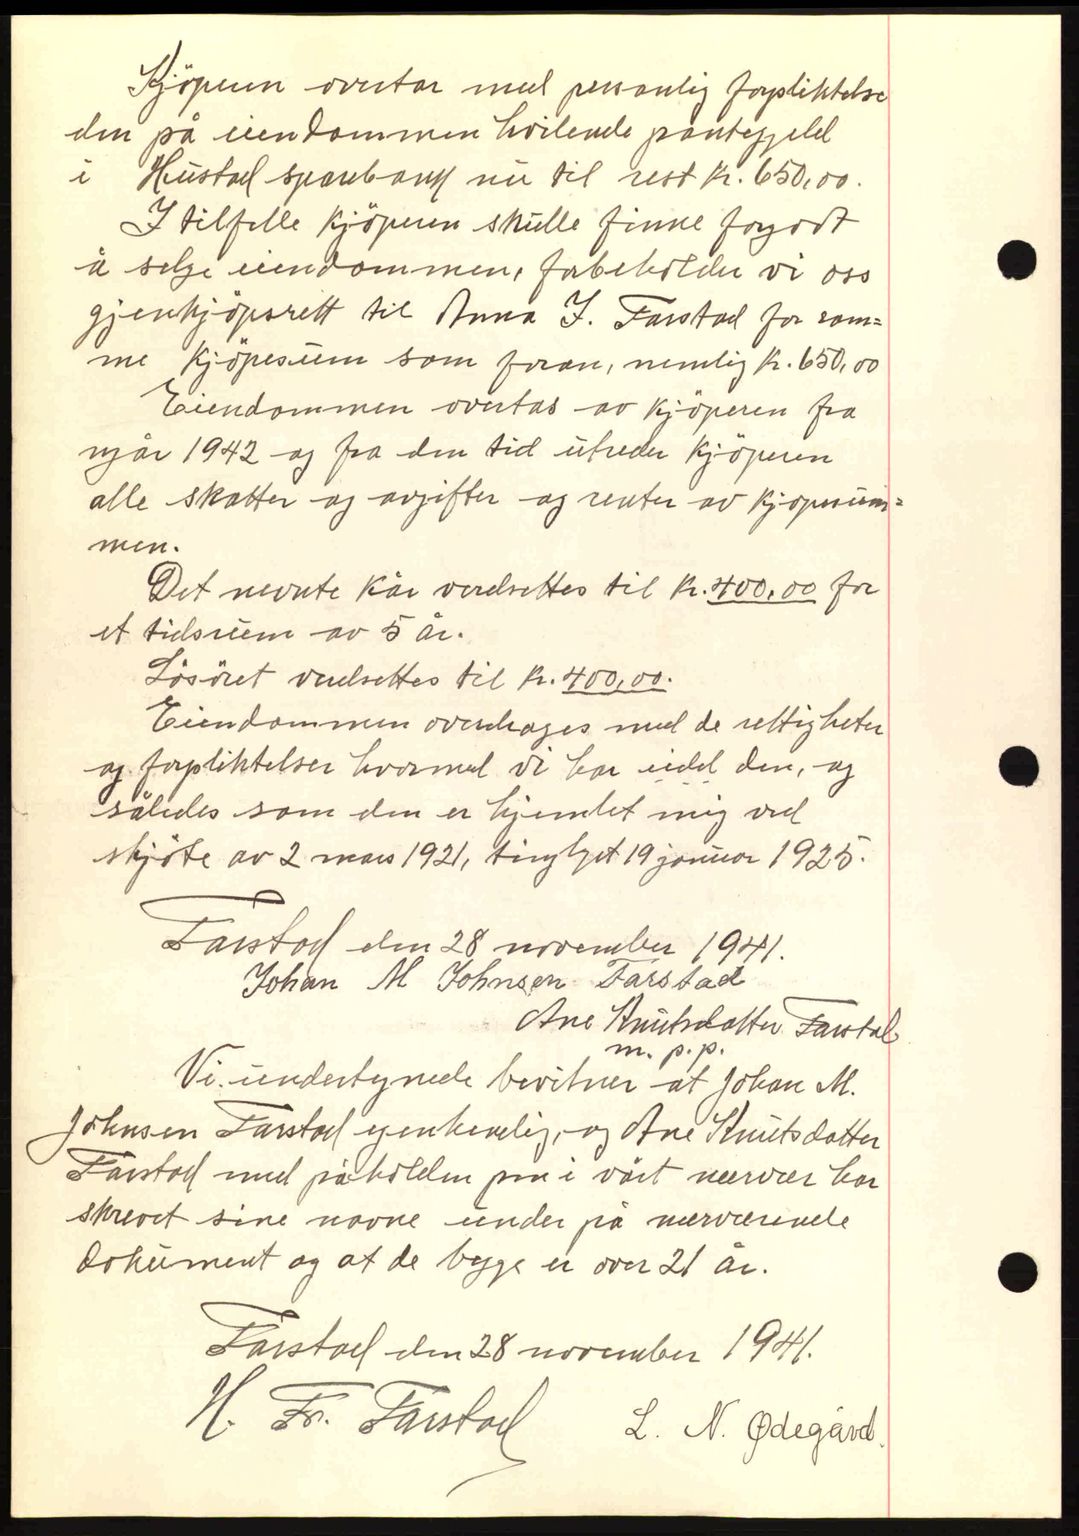 Kjöperen overtar med personlig forpliktelse
den på eiendommen hvilende pantegjeld
i Hustad sparebank nu til rest kr. 650,00.
I tilfelle kjöperen skulle finne forgodt
å selge eiendommen, forbeholder vi oss
gjenkjöpsrett til Anna J. Farstad for sam=
me kjöpesum som foran, nemlig kr. 650,00
Eiendommen overtas av kjöperen fra
nyår 1942 og fra den tid utreder kjöperen
alle skatter og avgifter og renter av kjöpesum=
men.
Det nevnte kår verdsettes til kr. 400,00 for
et tidsrum av 5 år.
Lösöret verdsettes til kr. 400,00.
Eiendommen overdrages med de rettigheter
og forpliktelser hvormed vi har eiet den, og
således som den er hjemlet mig ved
skjöte av 2 mars 1921, tinglyst 19 januar 1925.
Farstad den 28 november 1941.
Johan M Johnsen Farstad
Ane Knutsdatter Farstad
m. p. p.
Vi undertegnede bevitner at Johan M.
Johnsen Farstad egenhendig, og Ane Knutsdatter
Farstad med påholden pen i vårt nærvær har
skrevet sine navne under på nærværende
dokument og at de begge er over 21 år.
Farstad den 28 november 1941.
H. Fr. Farstad L. N. Ødegård.